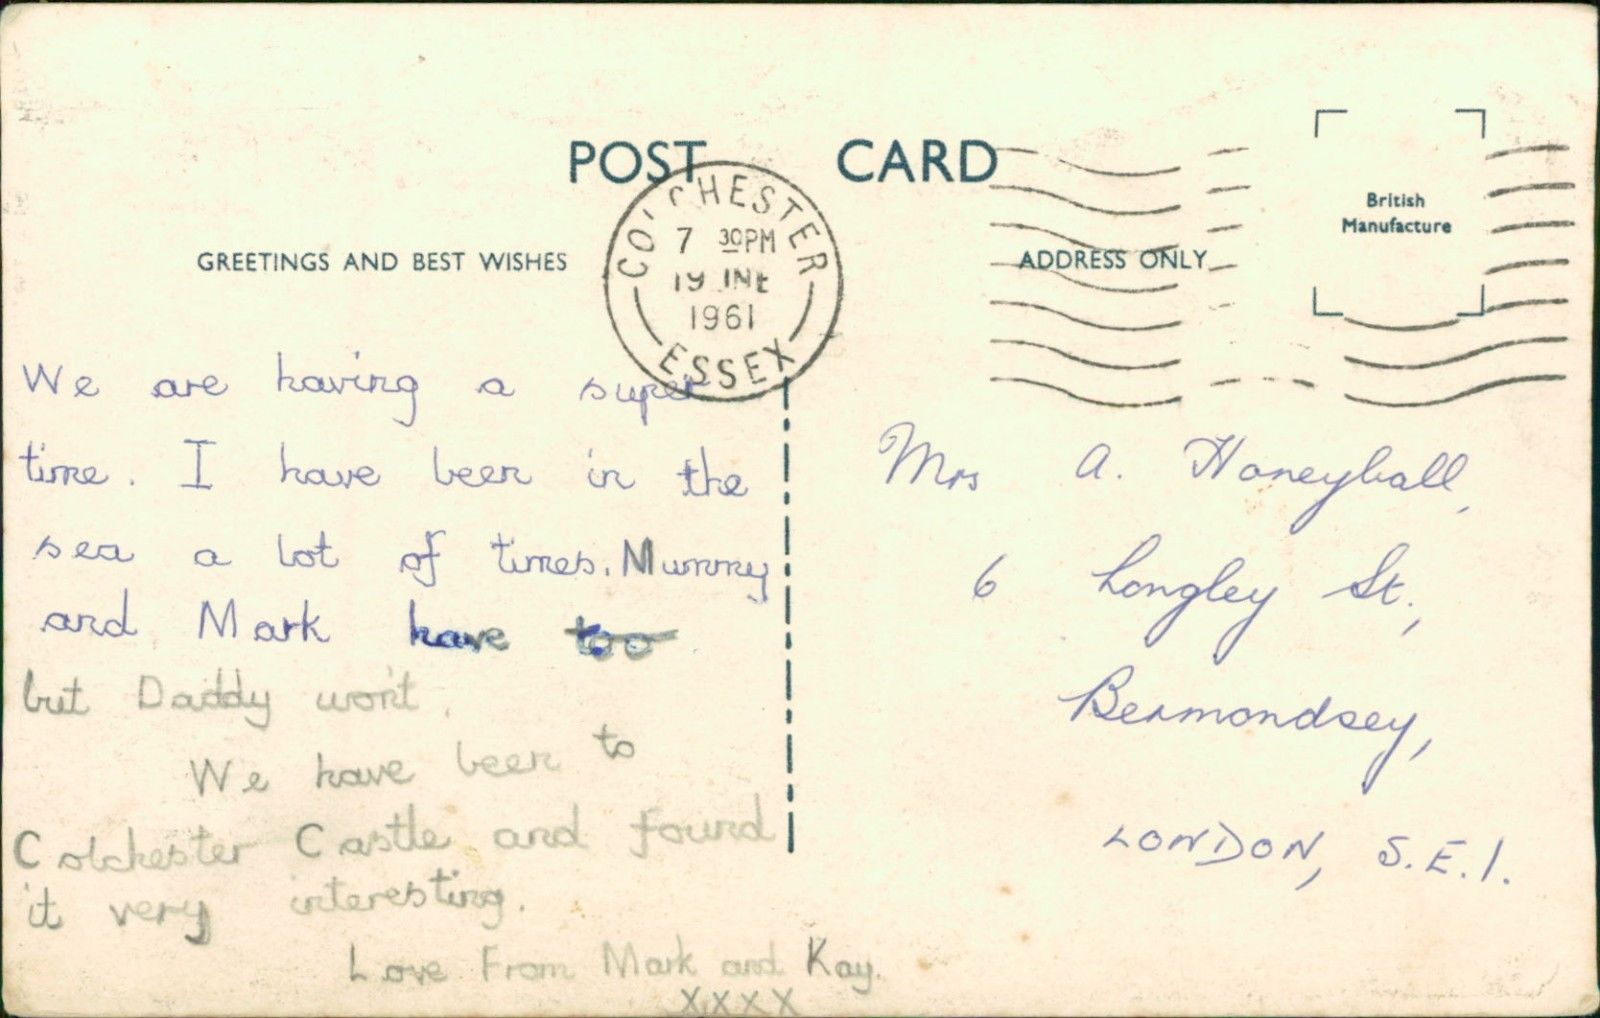 POST CARD
British
Manufacture
GREETINGS AND BEST WISHES
ADDRESS ONLY
COLCHESTER
7 30PM
19 JNE
1961
ESSEX
We are having a super
time. I have been in the
sea a lot of times. Mummy
and Mark have too
but Daddy won't.
We have been to
Colchester Castle and found
it very interesting.
Love From Mark and Kay.
XXXX
Mrs A. Honeyball,
6 Longley St.,
Bermondsey,
LONDON, S.E.1.